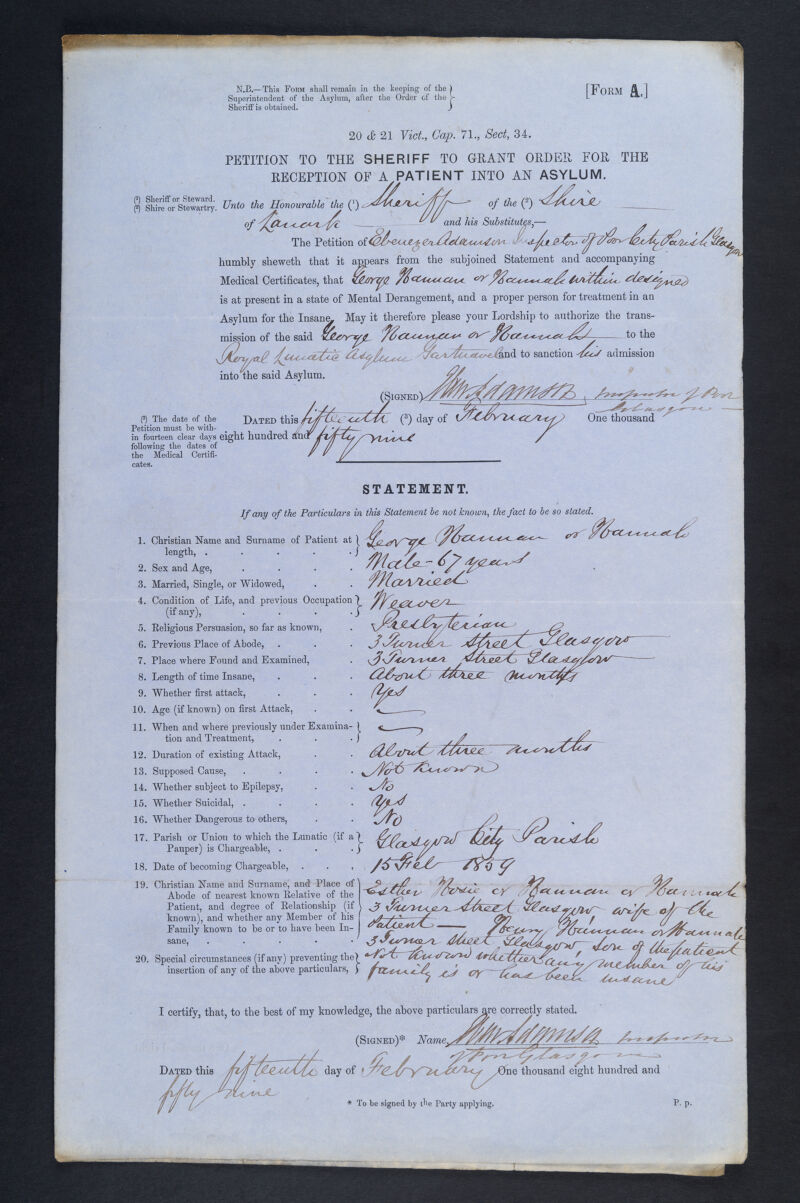 N.B.—This Form shall remain in the keeping of the
Superintendent of the Asylum, after the Order of the
Sheriff is obtained.
[Form A.]
20 & 21 Vict., Cap. 71., Sect, 34.
PETITION TO THE SHERIFF TO GRANT ORDER FOR THE
RECEPTION OF A PATIENT INTO AN ASYLUM.
(¹) Sheriff or Steward.
(²) Shire or Stewartry.
Unto the Honourable the (¹) Sheriff of the (²) Shire
of Lanark and his Substitutes,—
The Petition of Ebenezer Adamson Inspector of Poor City Parish Glasgow
humbly sheweth that it appears from the subjoined Statement and accompanying
Medical Certificates, that George Hannan or Hannah within designed
is at present in a state of Mental Derangement, and a proper person for treatment in an
Asylum for the Insane. May it therefore please your Lordship to authorize the trans-
mission of the said George Hannan or Hannah to the
Royal Lunatic Asylum Gartnavel and to sanction his admission
into the said Asylum.
(Signed) Eben Adamson, Inspector of Poor
Glasgow
(³) The date of the
Petition must be with-
in fourteen clear days
following the dates of
the Medical Certifi-
cates.
Dated this fifteenth (³) day of February One thousand
eight hundred and fifty nine
STATEMENT.
If any of the Particulars in this Statement be not known, the fact to be so stated.
1. Christian Name and Surname of Patient at length, . . . . . George Hannan or Hannah
2. Sex and Age, . . . . Male - 67 years
3. Married, Single, or Widowed, . . Married
4. Condition of Life, and previous Occupation (if any), . . . . Weaver
5. Religious Persuasion, so far as known, . Presbyterian
6. Previous Place of Abode, . . . 3 Turner Street Glasgow
7. Place where Found and Examined, . 3 Turner Street Glasgow
8. Length of time Insane, . . . About three months
9. Whether first attack, . . . Yes
10. Age (if known) on first Attack, . . —
11. When and where previously under Examina-
tion and Treatment, . . . —
12. Duration of existing Attack, . . About three months
13. Supposed Cause, . . . . Not known
14. Whether subject to Epilepsy, . . No
15. Whether Suicidal, . . . . Yes
16. Whether Dangerous to others, . . No
17. Parish or Union to which the Lunatic (if a
Pauper) is Chargeable, . . . Glasgow City Parish
18. Date of becoming Chargeable, . . . 15 Feb 1859
19. Christian Name and Surname, and Place of
Abode of nearest known Relative of the
Patient, and degree of Relationship (if
known), and whether any Member of his
Family known to be or to have been In-
sane, . . . . .
Esther Hosie or Hannan or Hannah
3 Turner Street Glasgow, wife of the
Patient — Henry Hannan or Hannah
3 Turner Street Glasgow, son of the patient
20. Special circumstances (if any) preventing the
insertion of any of the above particulars,
Not known whether any member of his
family is or has been insane
I certify, that, to the best of my knowledge, the above particulars are correctly stated.
(Signed)* Name, Eben Adamson Inspector
of Poor Glasgow
Dated this fifteenth day of February One thousand eight hundred and
fifty nine
* To be signed by the Party applying.
P. p.